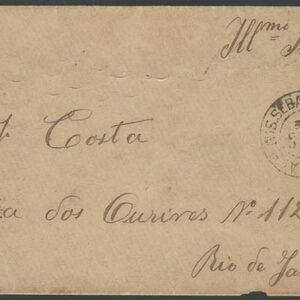 Illmo
Costa
dos Ourives Nº 112
Rio de Ja
S.SEBA